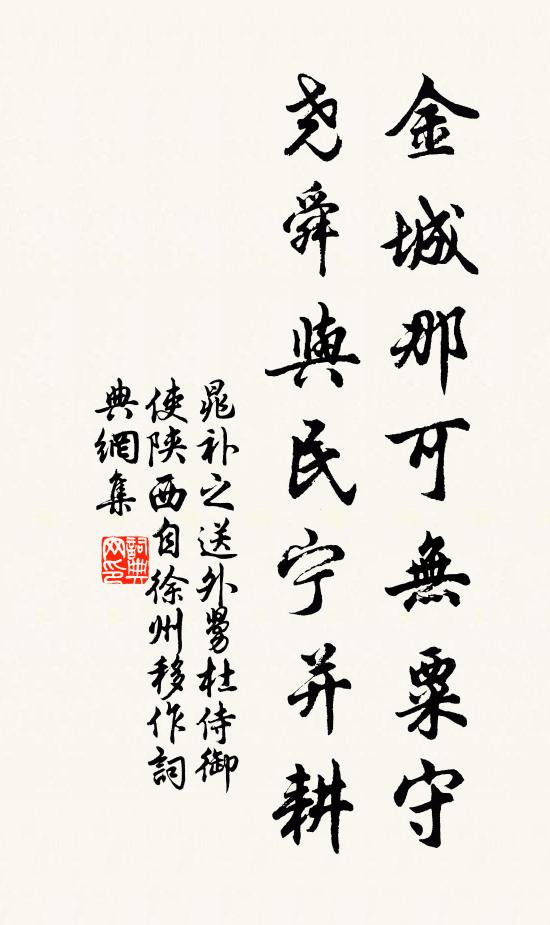 金城那可無粟守
尧舜與民宁并耕
晁补之送外舅杜侍御
使陕西自徐州移作詞
典網集
詞典网印